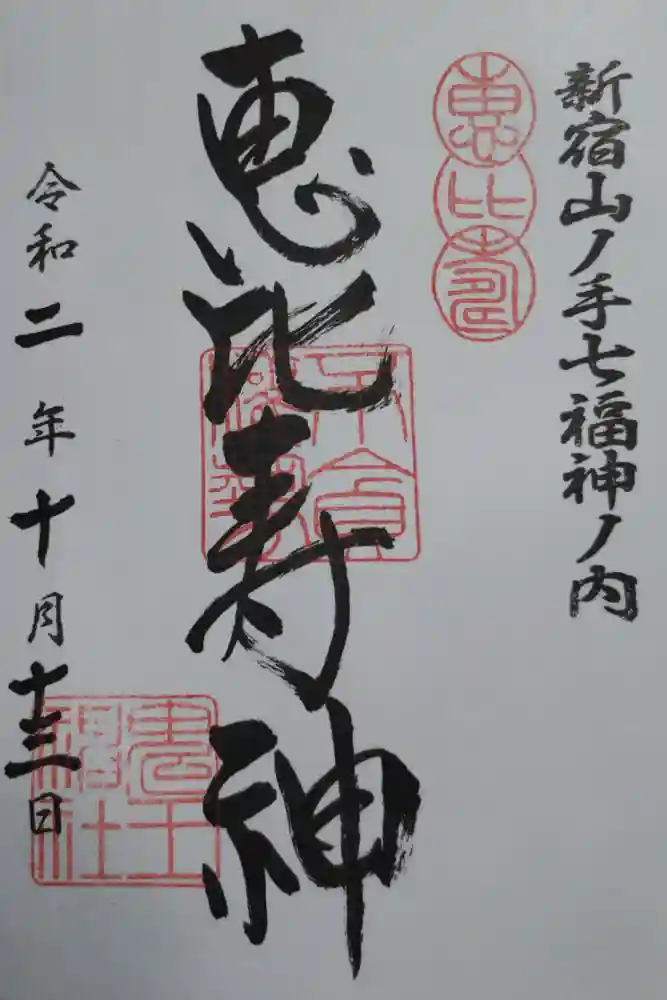 新宿山ノ手七福神ノ内
恵比寿
恵比寿神
鬼王
神社
令和二年十月十三日